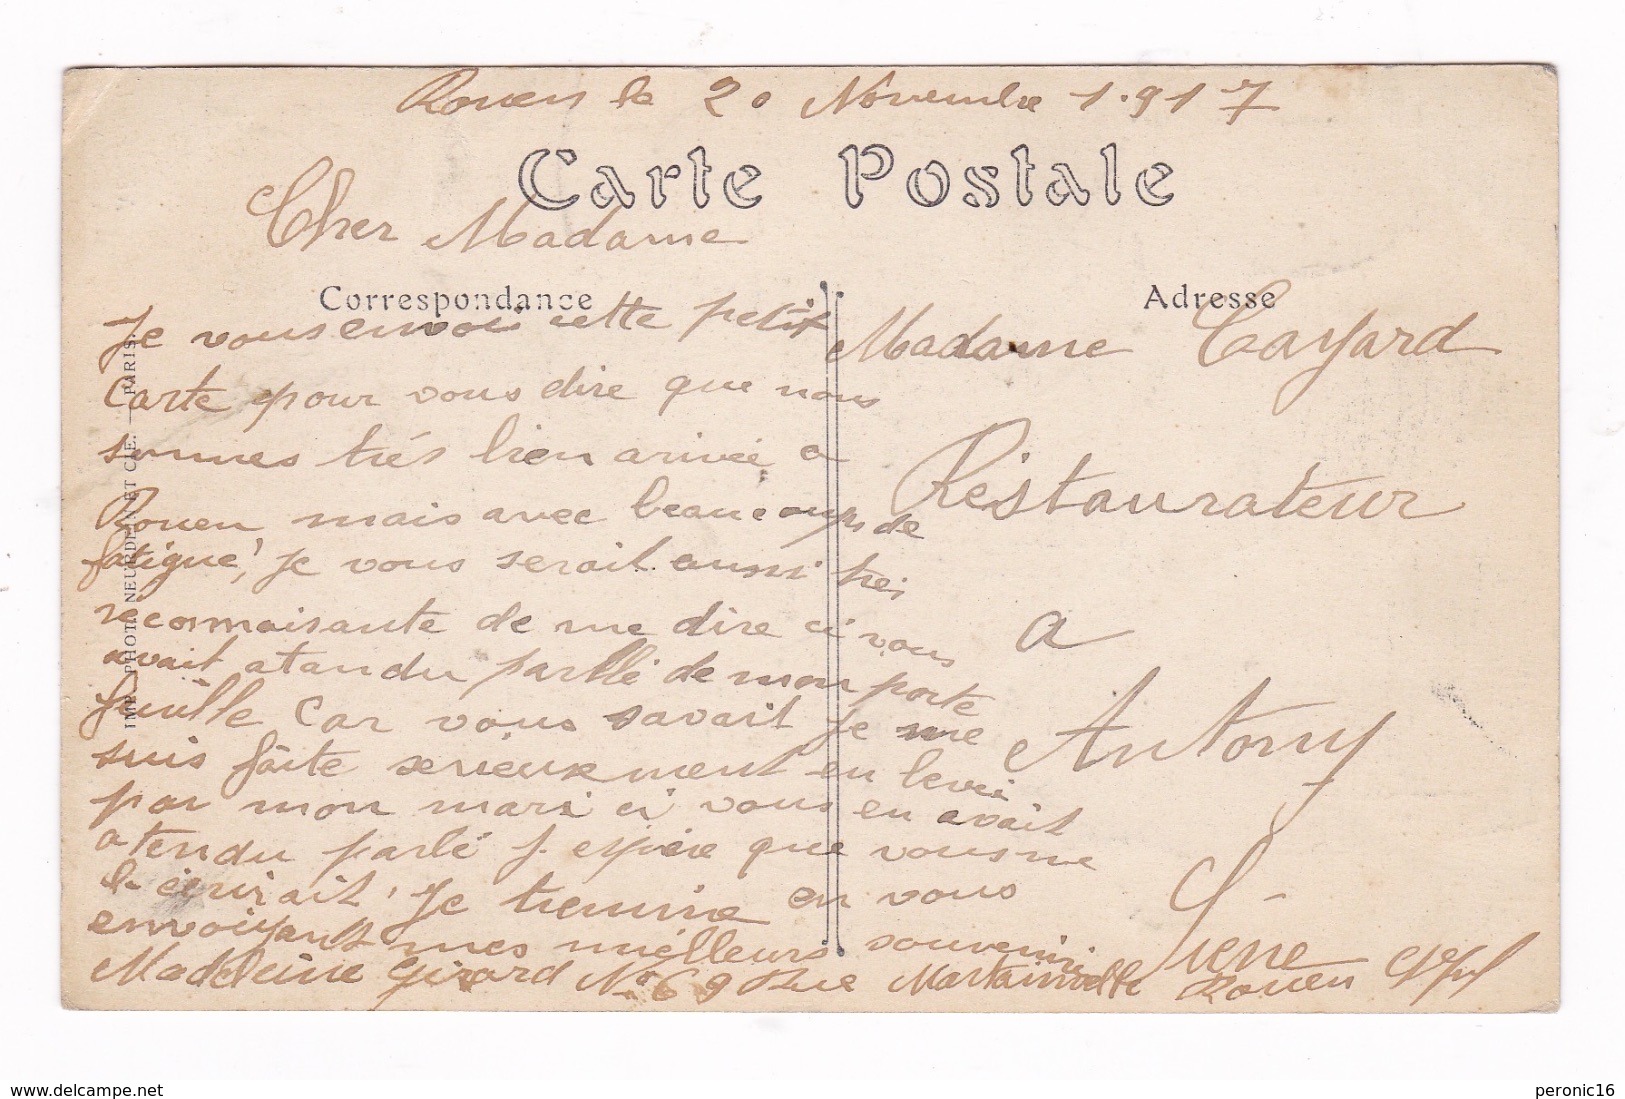 Rouen le 20 Novembre 1.917
Carte Postale
Cher Madame
Correspondance
Je vous envoi cette petit
Carte pour vous dire que nous
sommes trés bien arivée a
Rouen mais avec beaucoups de
fatigue, Je vous serait aussi trés
reconnaisante de me dire ci vous
avait atandu parllé de mon porte
feuille Car vous savait Je me
suis faite serieuxement en levée
par mon mari ci vous en avait
atendu parlé J espère que vous me
le écrirait, Je termine en vous
envoiyant mes meilleurs souvenirs
Madeleine Girard No 69 Rue Martainville Rouen
Adresse
Madame Cayard
Réstaurateur
a
Antony
Seine
IMP. PHOT. NEURDEIN ET CIE. — PARIS.
www.delcampe.net
peronic16